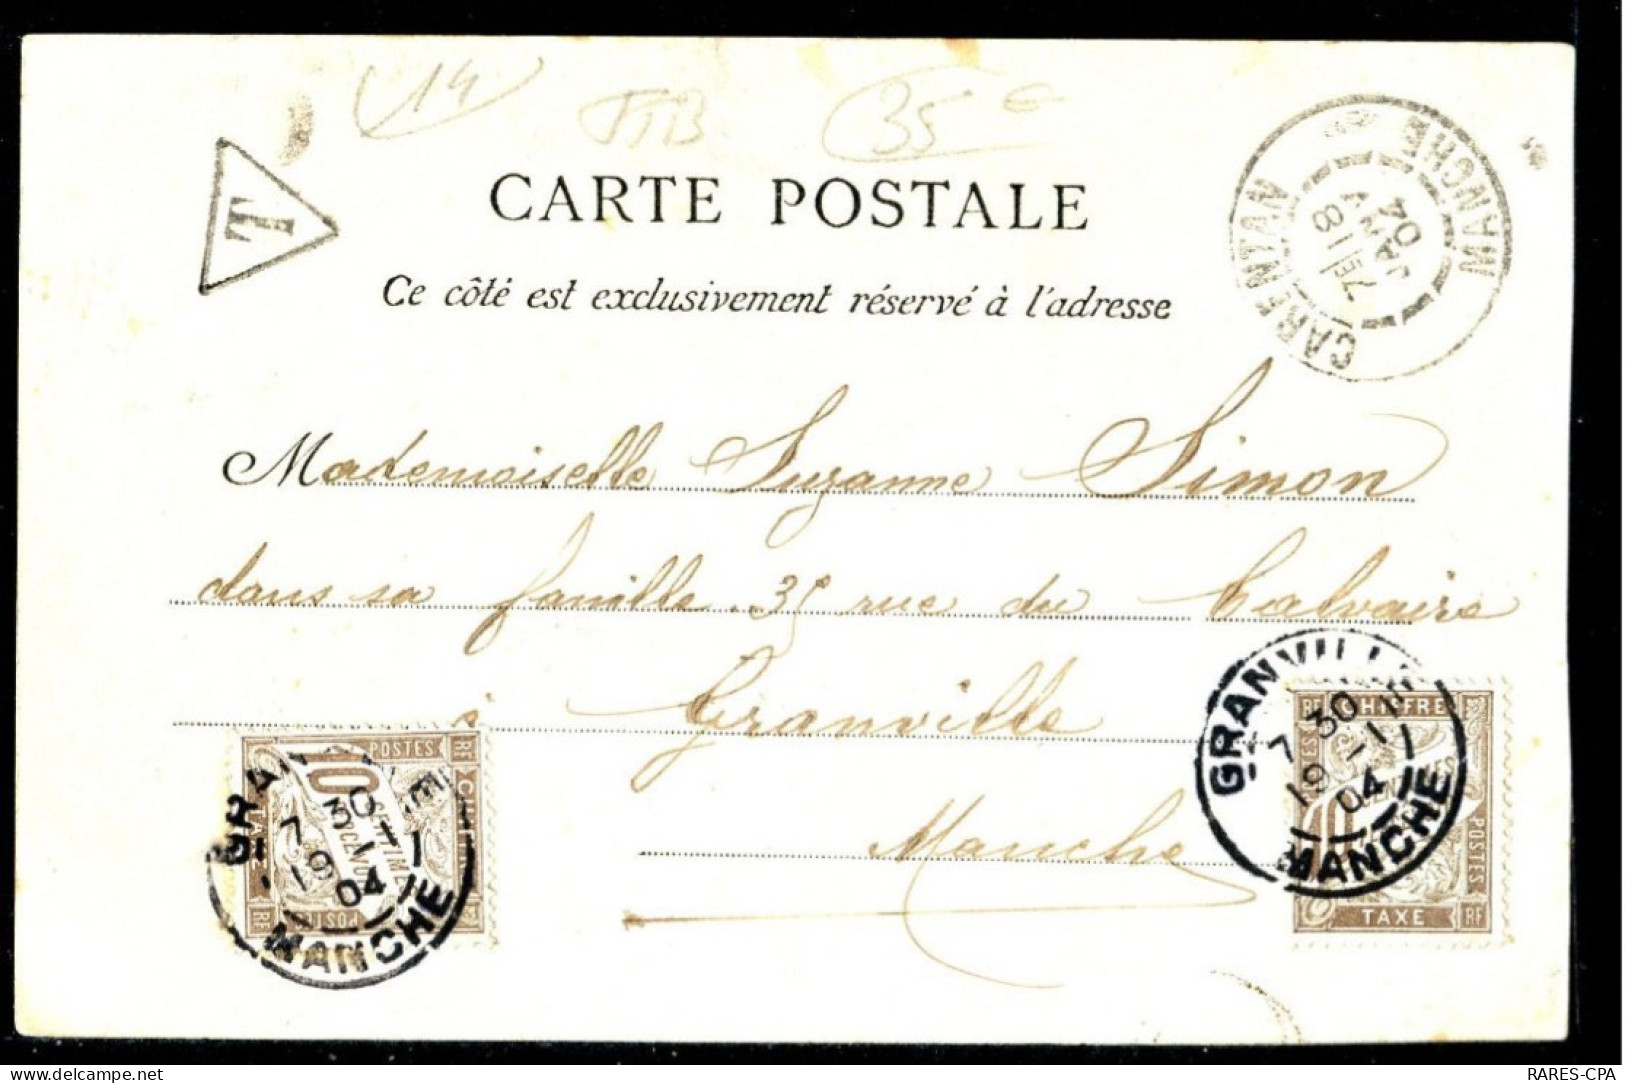 14
TTB
35 €
T
CARTE POSTALE
Ce côté est exclusivement réservé à l'adresse
CARENTAN MANCHE
7E/18
JANV
04
Mademoiselle Suzanne Simon
dans sa famille 35 rue du Calvaire
à Granville
Manche
GRANVILLE MANCHE
7 30
1-1
19 04
POSTES RF
10 CENTIMES
À PERCEVOIR
RF POSTES
GRANVILLE MANCHE
7 30
1-1
19 04
RF CHIFFRE
10 CENTIMES
POSTES
TAXE RF
delcampe.net
RARES-CPA